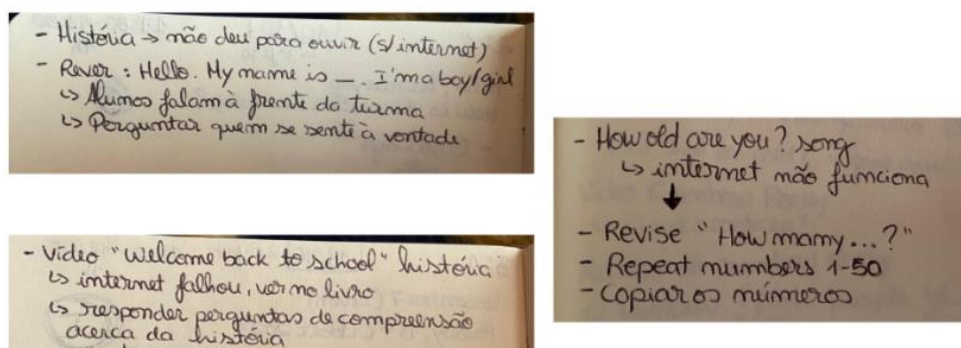 - História → não deu para ouvir (s/internet)
- Rever : Hello. My name is __. I'm a boy/girl
↳ Alunos falam à frente da turma
↳ Perguntar quem se sente à vontade
- Vídeo "Welcome back to school" história
↳ internet falhou, ver no livro
↳ responder perguntas de compreensão
acerca da história
- How old are you? song
↳ internet não funciona
↓
- Revise "How many...?"
- Repeat numbers 1-50
- Copiar os números